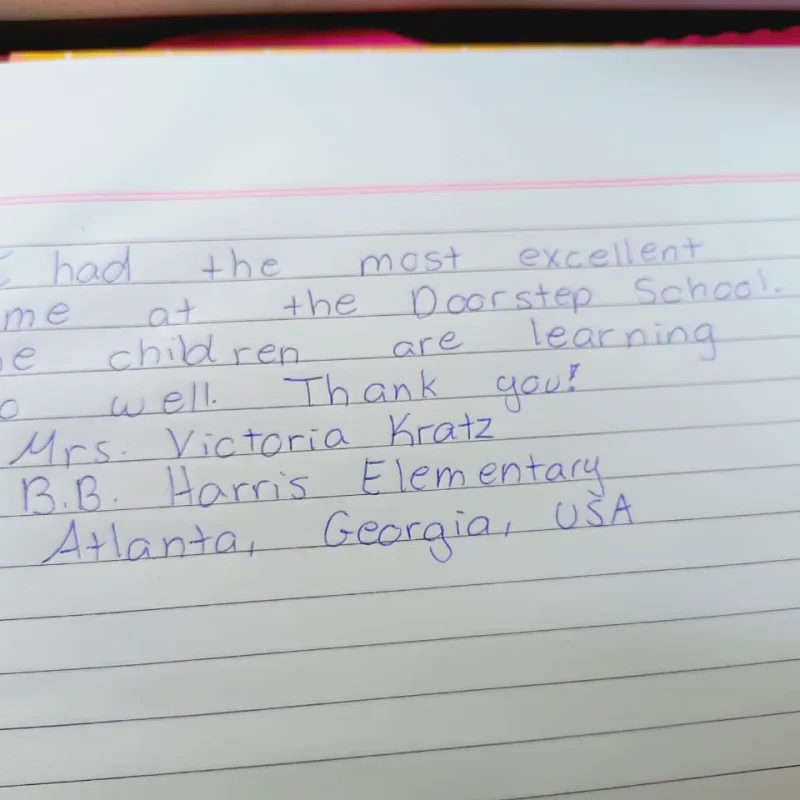 I had the most excellent
me at the Doorstep School.
e children are learning
o well. Thank you!
Mrs. Victoria Kratz
B.B. Harris Elementary
Atlanta, Georgia, USA